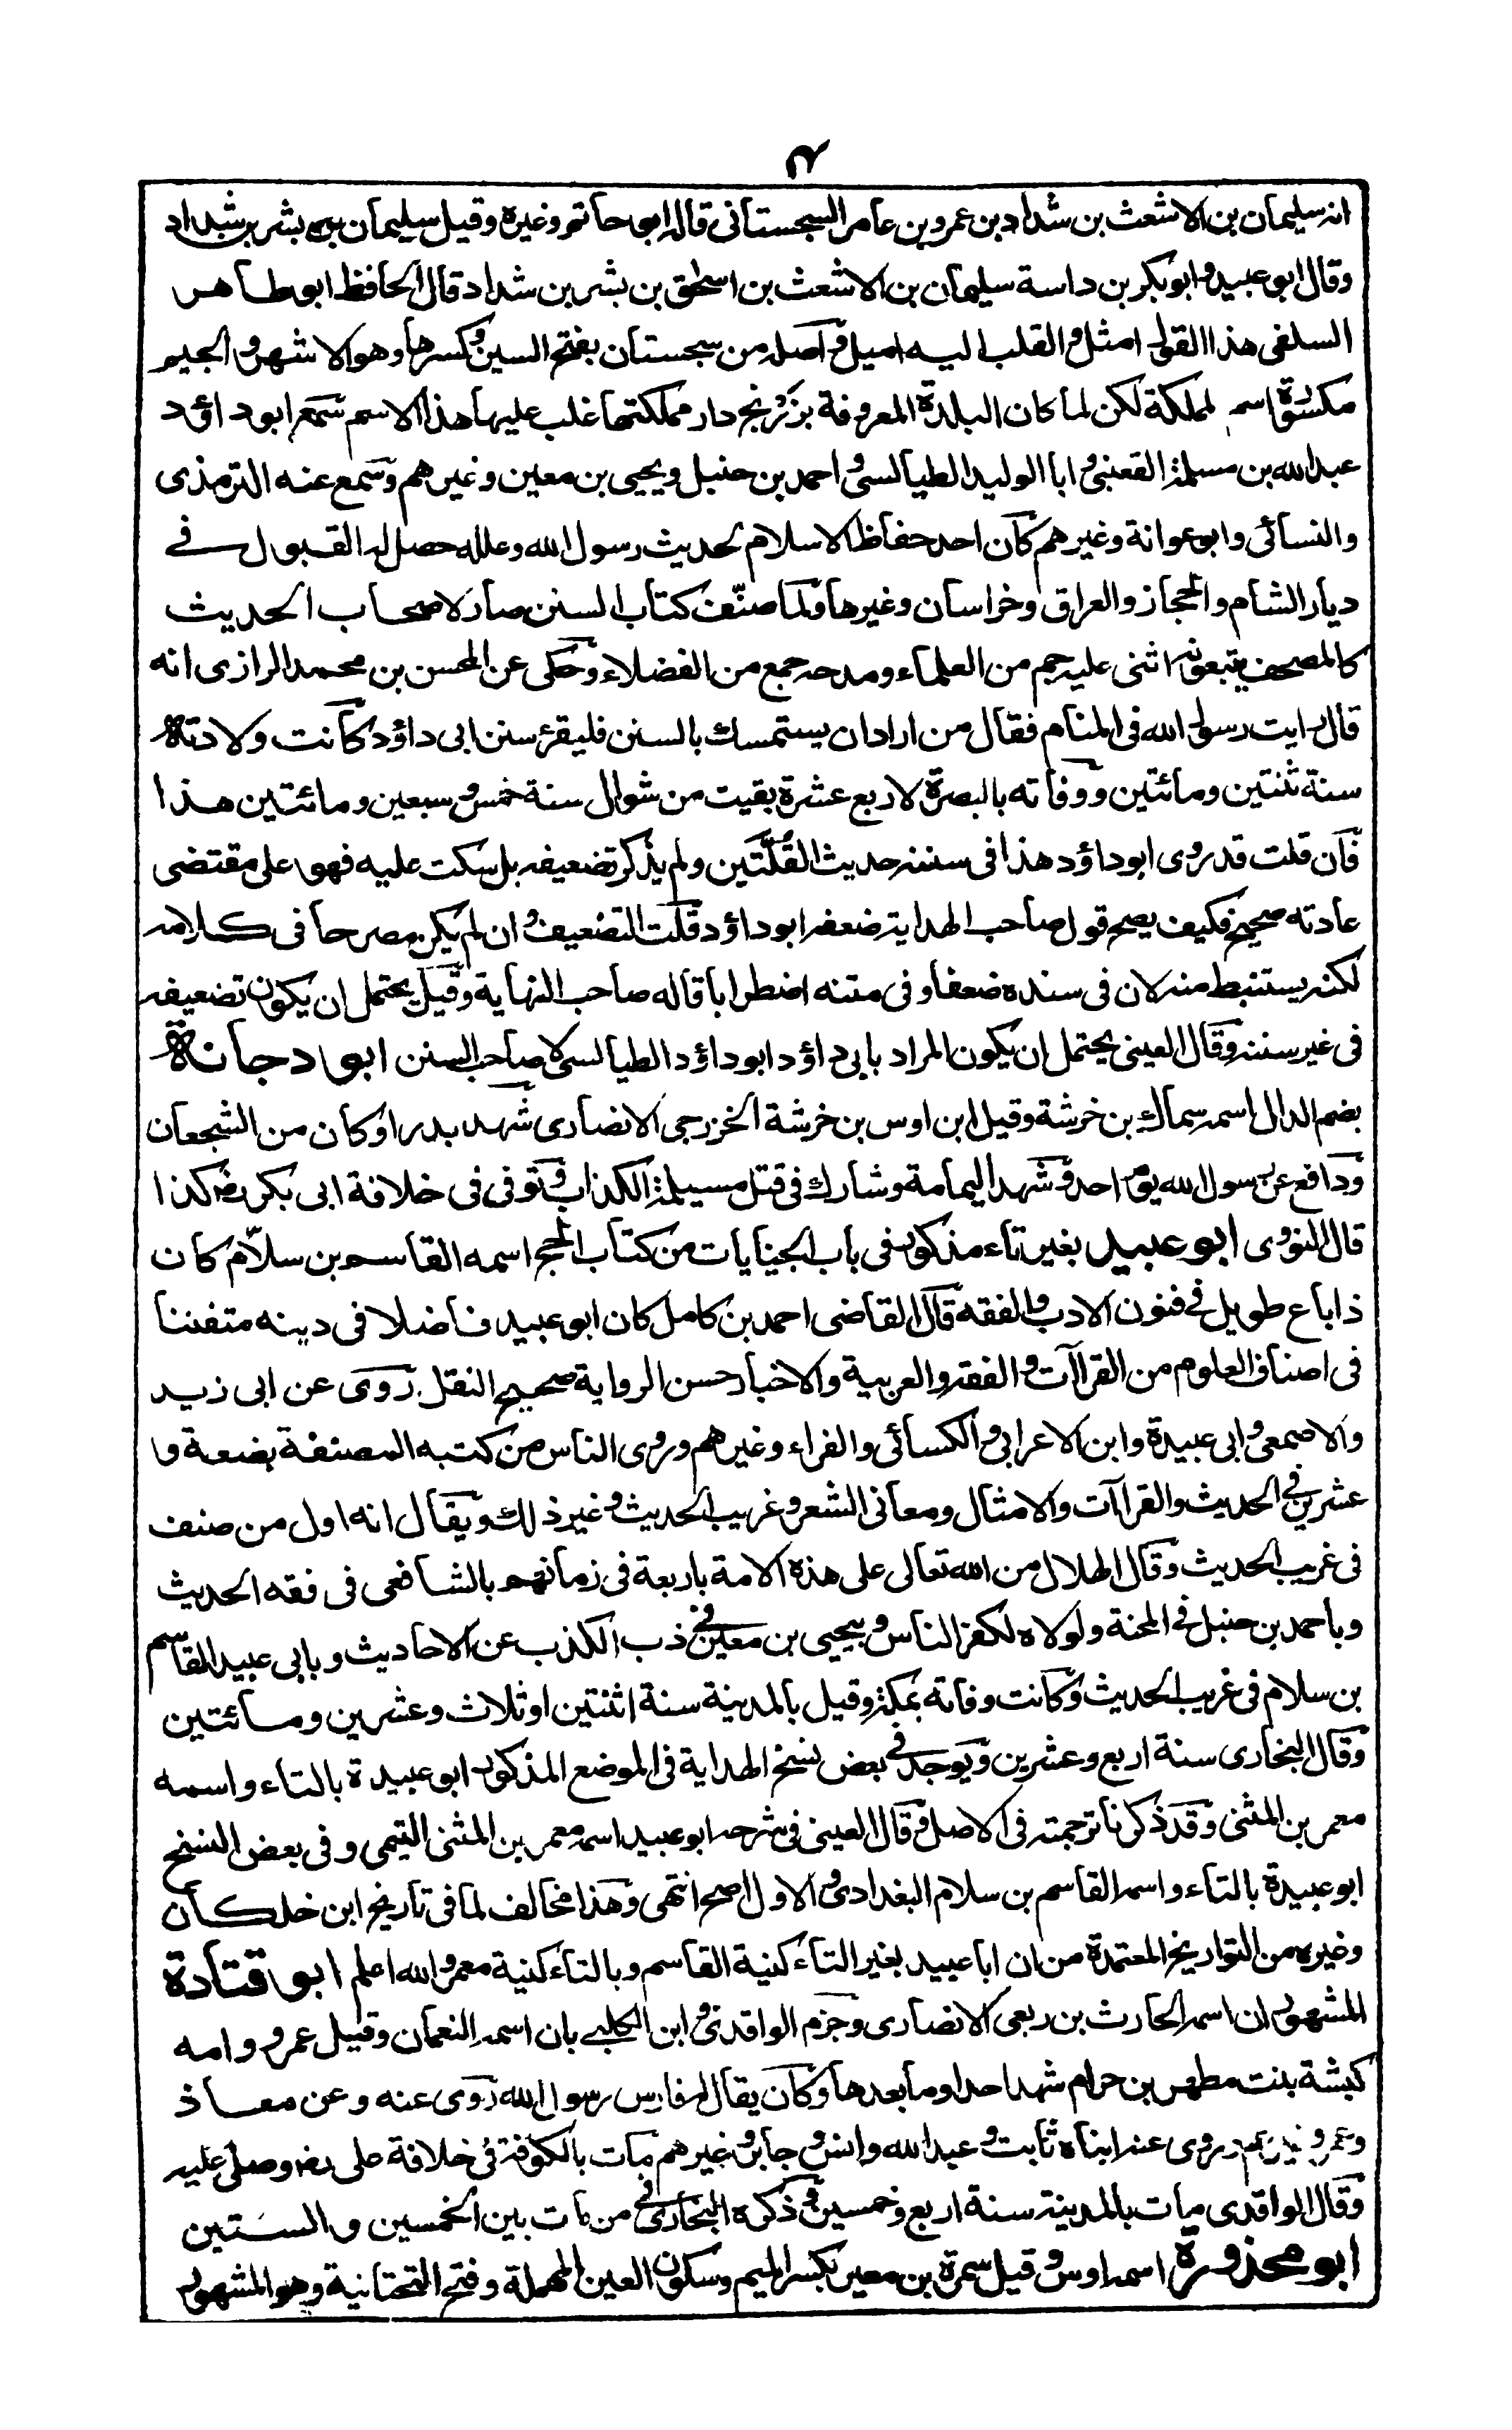 ٧
انه سليمان بن الاشعث بن شداد بن عمرو بن عامر السجستانى قاله ابو حاتم وغيره وقيل سليمان بن بشر بن شداد
وقال ابو عبيد وابو بكر بن داسة سليمان بن الاشعث بن اسحٰق بن بشر بن شداد قال الحافظ ابو طاهر
السلفى هذا القول امثل والقلب اليه اميل واصله من سجستان بفتح السين وكسرها وهو الاشهر والجيم
مكسورة اسم لمملكة لكن لما كان البلدة المعروفة بزرنج دار مملكتها غلب عليها هذا الاسم سمع ابو داؤد
عبد الله بن مسلمة القعنبى وابا الوليد الطيالسى واحمد بن حنبل ويحيى بن معين وغيرهم وسمع عنه الترمذى
والنسائى وابو عوانة وغيرهم كان احد حفاظ الاسلام لحديث رسول الله وعلله حصل له القبول فى
ديار الشام والحجاز والعراق وخراسان وغيرها ولما صنّف كتاب السنن صار لاصحاب الحديث
كالمصحف يتبعونه اثنى عليه جم من العلماء ومدحه جمع من الفضلاء وحكى عن الحسن بن محمد الرازى انه
قال رايت رسول الله فى المنام فقال من اراد ان يستمسك بالسنن فليقرء سنن ابى داؤد كانت ولادته
سنة ثنتين ومائتين ووفاته بالبصرة لاربع عشرة بقيت من شوال سنة خمس وسبعين ومائتين هذا
فان قلت قد روى ابو داؤد هذا فى سننه حديث القُلَّتين ولم يذكر تضعيفه بل سكت عليه فهو على مقتضى
عادته صحيح فكيف يصح قول صاحب الهداية ضعفه ابو داؤد قلت التضعيف وان لم يكن مصرحا فى كلامه
لكنه يستنبط منه لان فى سنده ضعفا وفى متنه اضطرابا قاله صاحب النهاية وقيل يحتمل ان يكون تضعيفه
فى غير سننه وقال العينى يحتمل ان يكون المراد بابى داؤد ابو داؤد الطيالسى لا صاحب السنن ابو دجانة
بضم الدال اسمه سماك بن خرشة وقيل ابن اوس بن خرشة الخزرجى الانصارى شهد بدرا وكان من الشجعان
ودافع عن رسول الله يوم احد وشهد اليمامة وشارك فى قتل مسيلمة الكذاب وتوفى فى خلافة ابى بكر رض كذا
قال النووى ابو عبيد بغير تاء مذكور فى باب الجنايات من كتاب الحج اسمه القاسم بن سلّام كان
ذا باع طويل فى فنون الادب والفقه قال القاضى احمد بن كامل كان ابو عبيد فاضلا فى دينه متفننا
فى اصناف العلوم من القراآت والفقه والعربية والاخبار حسن الرواية صحيح النقل روى عن ابى زيد
والاصمعى وابى عبيدة وابن الاعرابى والكسائى والفراء وغيرهم وروى الناس من كتبه المصنفة بضعة و
عشرين فى الحديث والقراآت والامثال ومعانى الشعر وغريب الحديث وغير ذلك ويقال انه اول من صنف
فى غريب الحديث وقال الهلال من الله تعالى على هذه الامة باربعة فى زمانهم بالشافعى فى فقه الحديث
وباحمد بن حنبل فى المحنة ولولاه لكفر الناس وبيحيى بن معين فى ذب الكذب عن الاحاديث وبابى عبيد القاسم
بن سلام فى غريب الحديث وكانت وفاته بمكة وقيل بالمدينة سنة اثنتين او ثلاث وعشرين ومائتين
وقال البخارى سنة اربع وعشرين ويوجد فى بعض نسخ الهداية فى الموضع المذكور ابو عبيدة بالتاء واسمه
معمر بن المثنى وقد ذكرنا ترجمته فى الاصل وقال العينى فى شرحه ابو عبيد اسمه معمر بن المثنى التيمى وفى بعض النسخ
ابو عبيدة بالتاء واسمه القاسم بن سلام البغدادى والاول اصح انتهى وهذا مخالف لما فى تاريخ ابن خلكان
وغيره من التواريخ المعتمدة من ان ابا عبيد بغير التاء كنية القاسم وبالتاء كنية معمر والله اعلم ابو قتادة
المشهور ان اسمه الحارث بن ربعى الانصارى وجزم الواقدى وابن الكلبى بان اسمه النعمان وقيل عمرو وامه
كبشة بنت مطهر بن حرام شهد احدا وما بعدها وكان يقال له فارس رسول الله روى عنه وعن معاذ
وعمر وغيرهم روى عنه ابناه ثابت وعبد الله وانس وجابر وغيرهم مات بالكوفة فى خلافة على رض وصلى عليه
وقال الواقدى مات بالمدينة سنة اربع وخمسين وذكره البخارى فى من مات بين الخمسين والستين
ابو محذورة اسمه اوس وقيل سمرة بن معير بكسر الميم وسكون العين المهملة وفتح التحتانية وهو المشهور